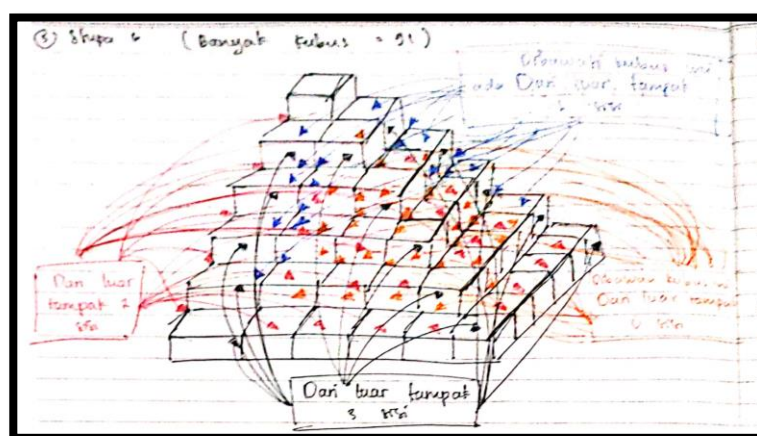 ③ Stupa 6 (Banyak kubus = 91)
Dibawah kubus ini
ada Dari luar tampak
1 sisi
Dari luar
tampak 2
sisi
Dibawah kubus ini
Dari luar tampak
0 sisi
Dari luar tampak
3 sisi